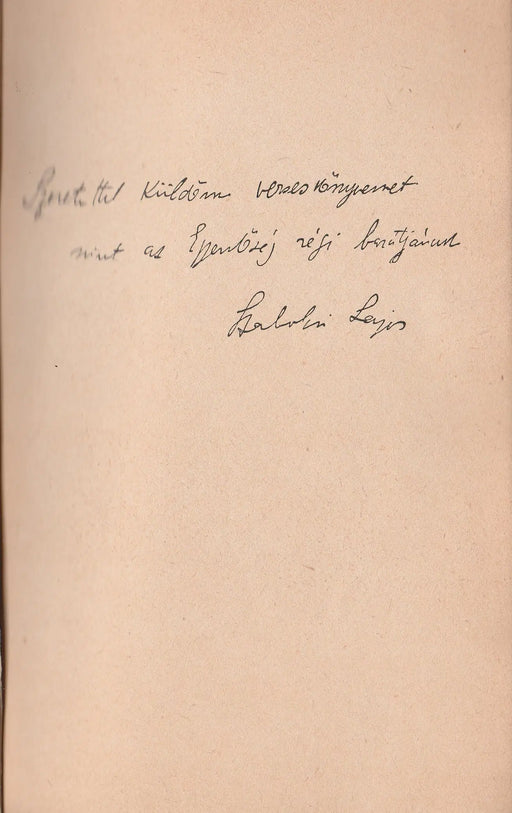 Szeretettel küldöm verseskönyvemet
mint az Egyenlőség régi barátjának
Szabolcsi Lajos